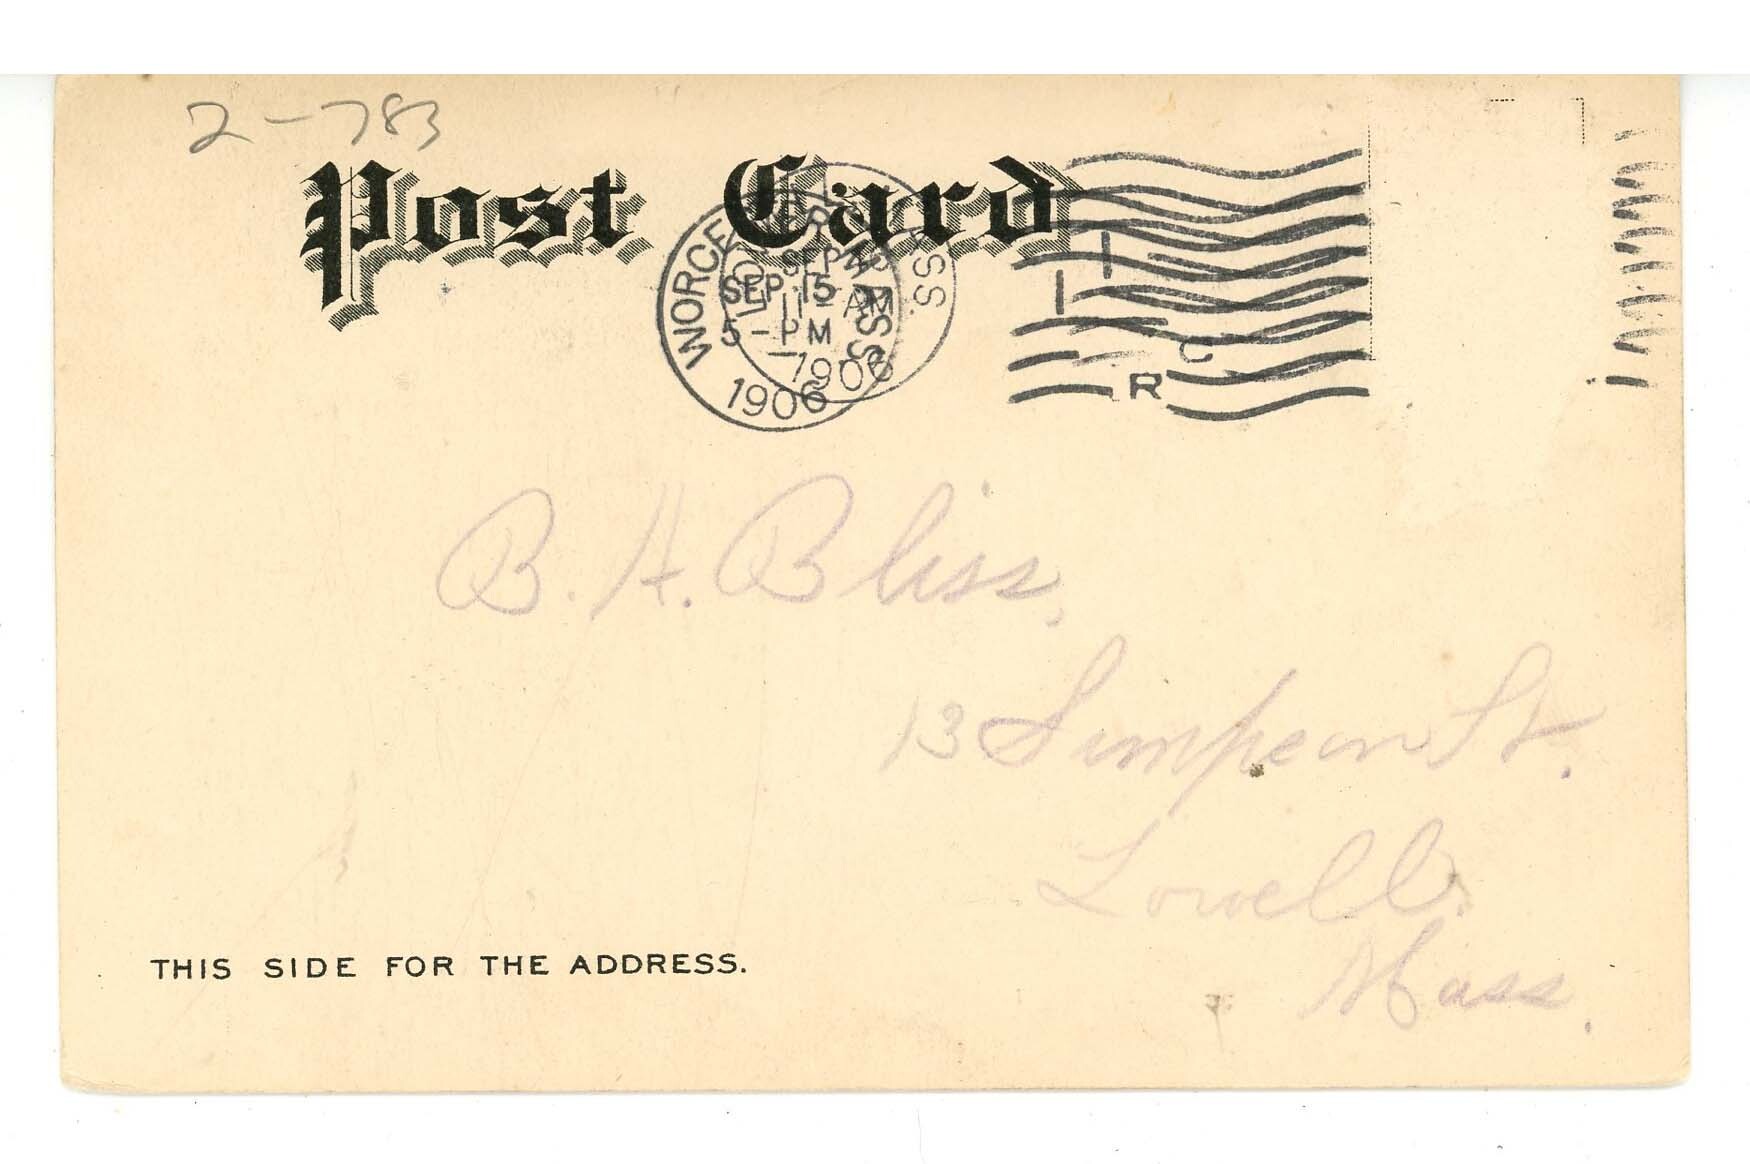 2-783
Post Card
WORCESTER, MASS.
SEP 15
5-PM
1906
LOWELL, MASS.
SEP
11-AM
1906
1
1
C
R
B. H. Bliss,
13 Simpson St.
Lowell.
Mass.
THIS SIDE FOR THE ADDRESS.